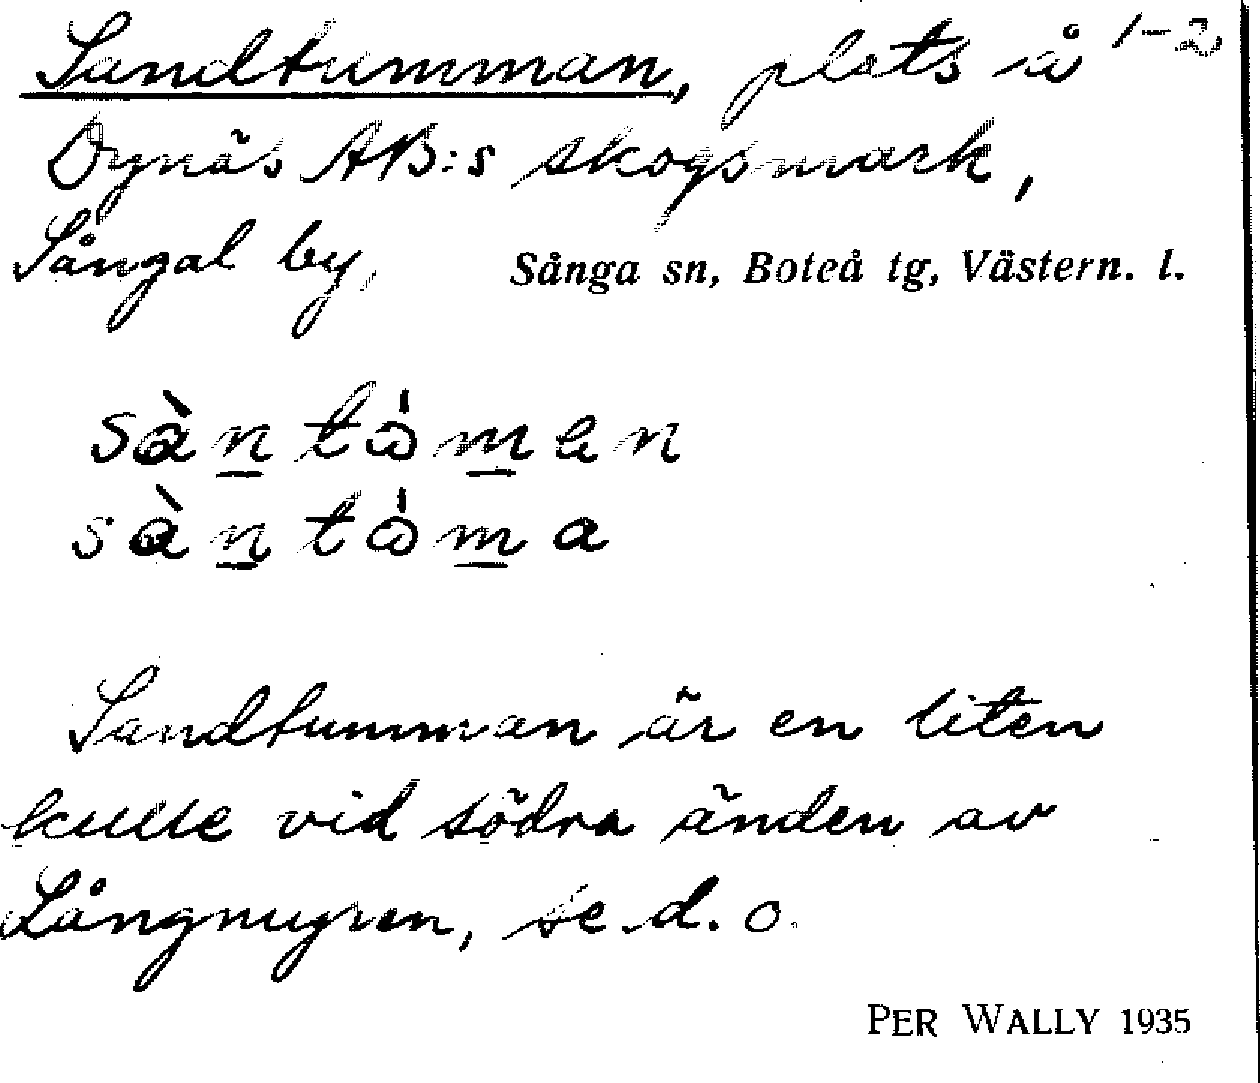 Sandtumman, plats å 1-2
Dynäs AB:s skogsmark,
Sångal by, Sånga sn, Boteå tg, Västern. l.
sàn̲tὼm̲en
sàn̲tὼm̲a
Sandtumman är en liten
kulle vid södra änden av
Långmyren, se d. o.
PER WALLY 1935